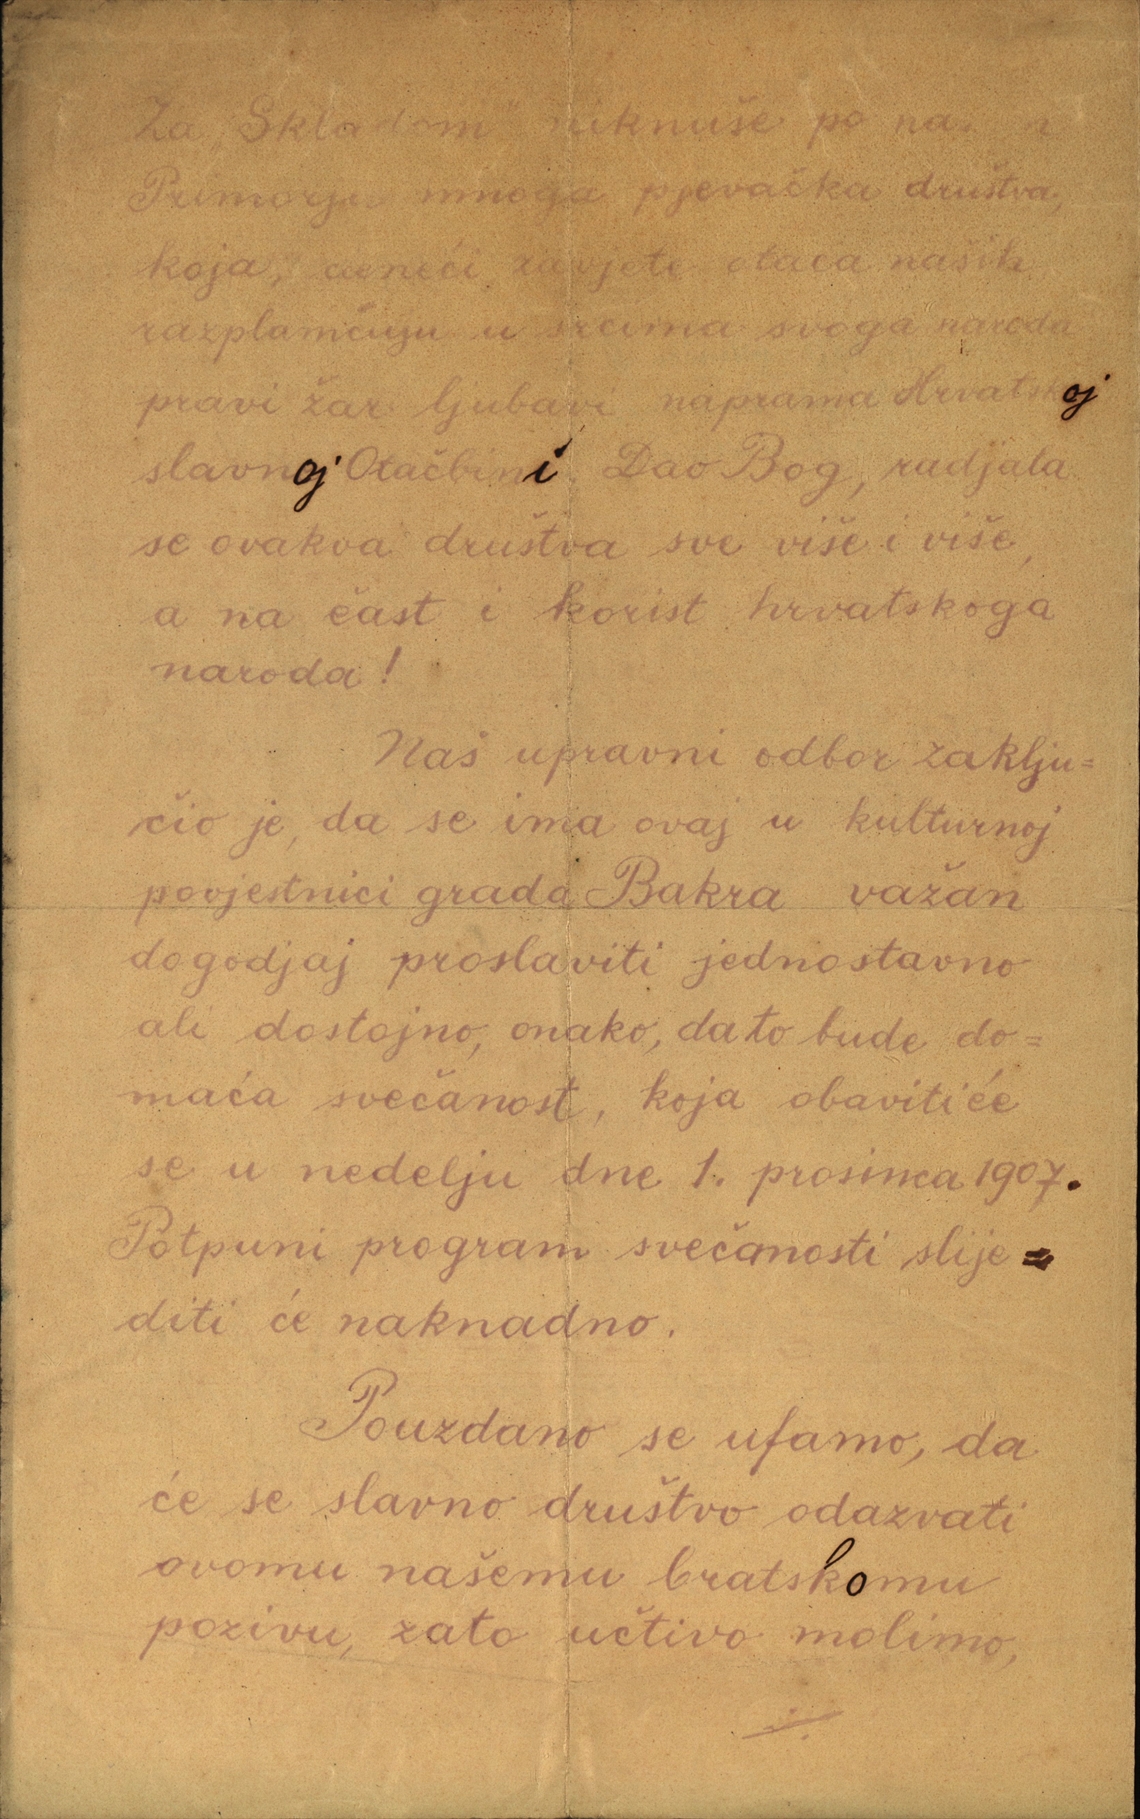 Za „Skladom" niknuše po
Primorju mnoga pjevačka društva,
koja, zavjete otaca naših
razplamćuju u srcima svoga naroda
pravi žar ljubavi naprama Hrvatskoj
slavnoj Otačbini. Dao Bog, radjala
se ovakva društva sve više i više,
a na čast i korist hrvatskoga
naroda!
Naš upravni odbor zaklju=
čio je, da se ima ovaj u kulturnoj
povjestnici grada Bakra važan
dogodjaj proslaviti jednostavno
ali dostojno, onako, da to bude do=
maća svečanost, koja obavitiće
se u nedelju dne 1. prosinca 1907.
Potpuni program svečanosti slije=
diti će naknadno.
Pouzdano se ufamo, da
će se slavno društvo odazvati
ovomu našemu bratskomu
pozivu, zato učtivo molimo,
./.